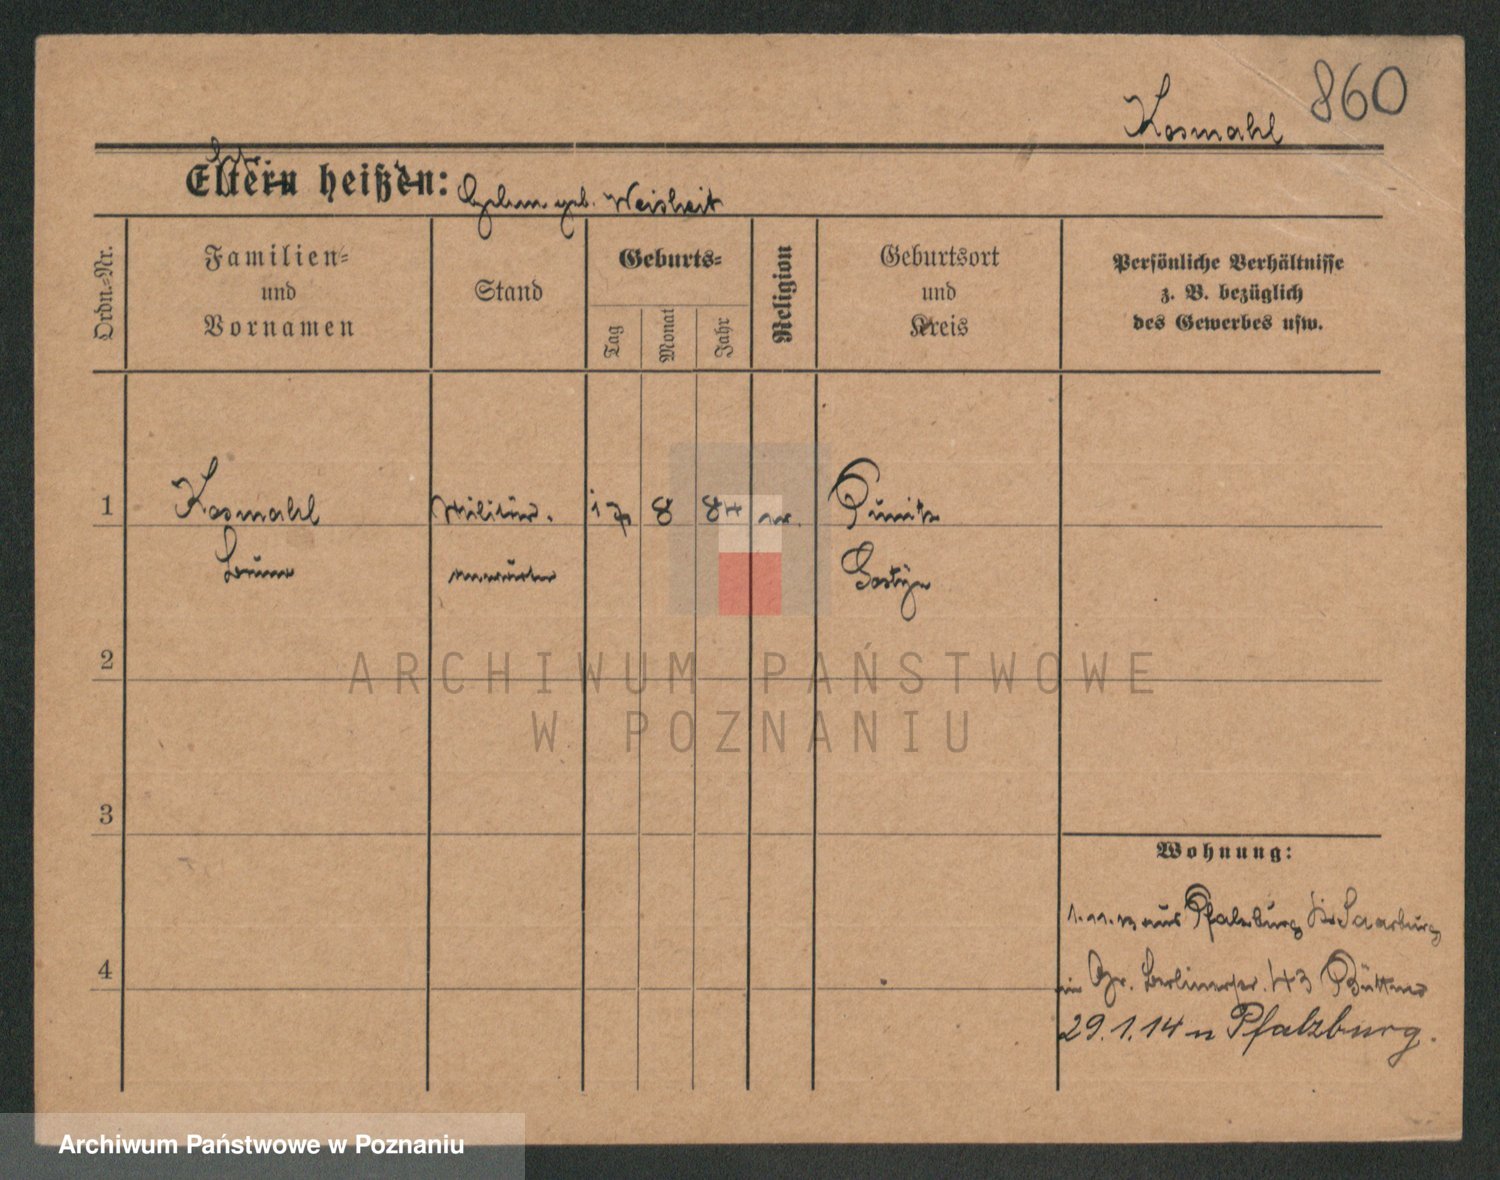 860
Kosmahl
Eltern heißen:
geb. Weisheit
Ordn.-Nr.
Familien-
und
Vornamen
Stand
Geburts-
Tag
Monat
Jahr
Religion
Geburtsort
und
Kreis
Persönliche Verhältnisse
z. B. bezüglich
des Gewerbes usw.
1
Kosmahl
Militär-
17
8
84
Punitz
Bruno
anwärter
Gostyn
2
3
Wohnung:
aus Pfalzburg Kr. Saarburg
4
Gr. Berlinerstr. 43 Büttner
29.1.14 n Pfalzburg.
ARCHIWUM PAŃSTWOWE
W POZNANIU
Archiwum Państwowe w Poznaniu